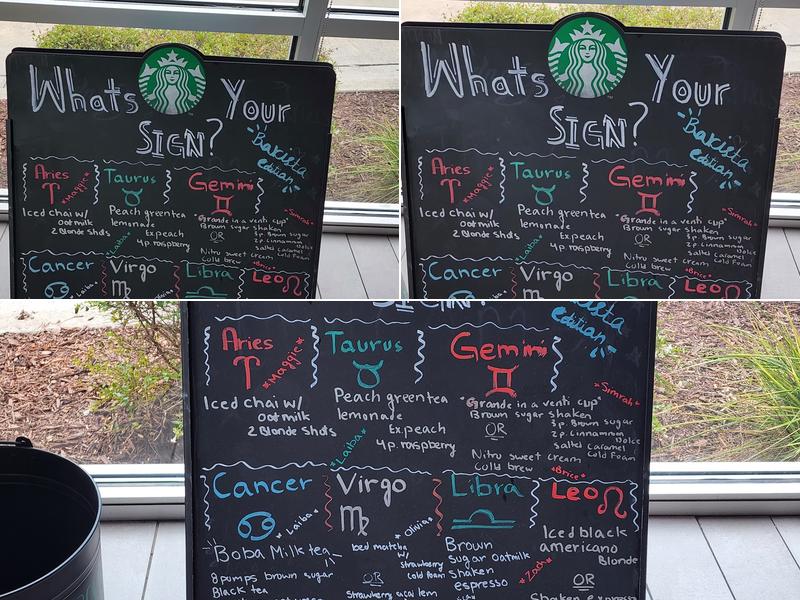 Whats Your
SIGN?
Barista
edition
Aries
Maggie
Iced chai w/
oatmilk
2 Blonde Shots
Taurus
Peach green tea
lemonade
Ex.peach
4p. raspberry
Laiba
Gemini
"Grande in a venti cup"
Brown sugar shaken
OR
Simrah
3p. Brown sugar
2p. Cinnammon
Dolce
Salted Caramel
Cold Foam
Nitro sweet cream
cold brew
Brice
Cancer
Laiba
Virgo
Libra
Leo
Whats Your
SIGN?
Barista
edition
Aries
Maggie
Iced chai w/
oatmilk
2 Blonde Shots
Taurus
Peach green tea
lemonade
Ex.peach
4p. raspberry
Laiba
Gemini
"Grande in a venti cup"
Brown sugar shaken
OR
Simrah
3p. Brown sugar
2p. Cinnammon
Dolce
Salted Caramel
Cold Foam
Nitro sweet cream
cold brew
Brice
Cancer
Laiba
Virgo
Libra
Leo
edition
Aries
Maggie
Iced chai w/
oatmilk
2 Blonde Shots
Taurus
Peach green tea
lemonade
Ex.peach
4p. raspberry
Laiba
Gemini
"Grande in a venti cup"
Brown sugar shaken
OR
Simrah
3p. Brown sugar
2p. Cinnammon
Dolce
Salted Caramel
Cold Foam
Nitro sweet cream
cold brew
Brice
Cancer
Laiba
Boba Milk tea
8 pumps brown sugar
Black tea
Virgo
Olivia
Iced matcha
w/
strawberry
cold foam
OR
Strawberry acai lem
Libra
Brown
sugar oatmilk
shaken
espresso
Zach
Leo
Iced black
americano
Blonde
OR
Shaken espresso